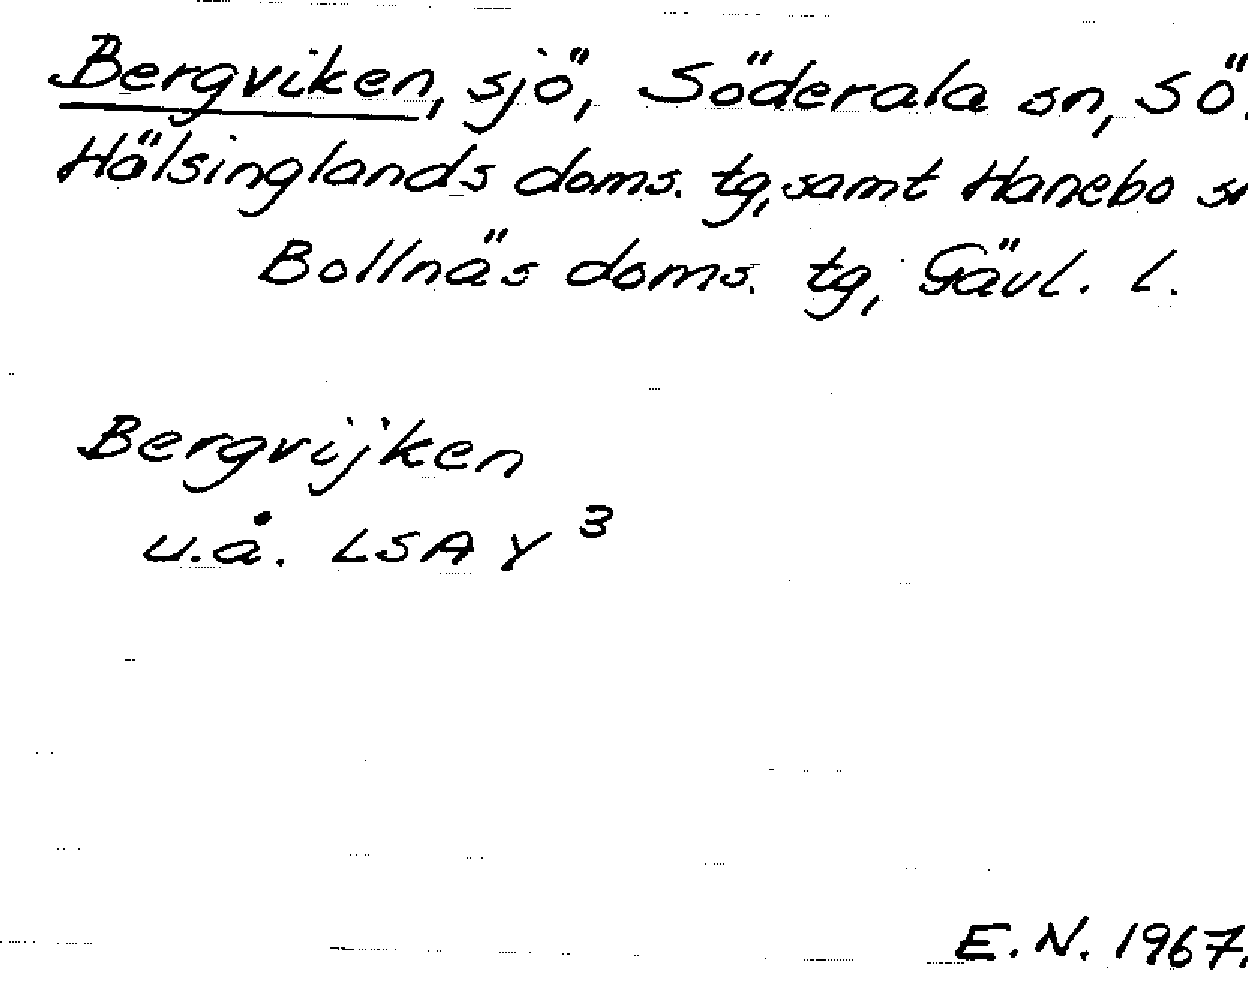 Bergviken, sjö, Söderala sn, Sö.
Hälsinglands doms. tg, samt Hanebo
Bollnäs doms. tg, Gävl. l.
Bergvijken
u.å. LSA Y 3
E.N. 1967.